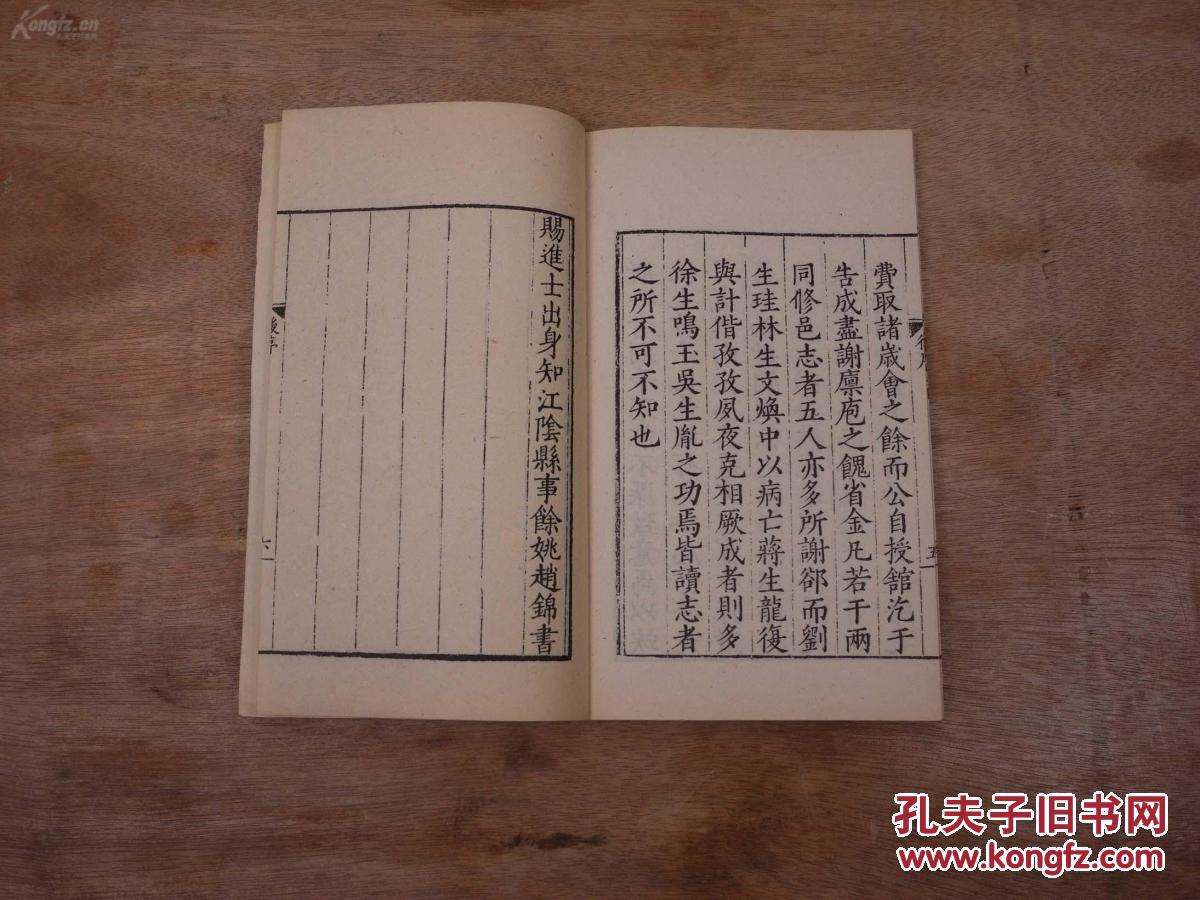 費取諸歲會之餘而公自授館汔于
告成盡謝廪庖之餽省金凡若干兩
同修邑志者五人亦多所謝郤而劉
生珪林生文煥中以病亡蔣生龍復
與計偕孜孜夙夜克相厥成者則多
徐生鳴玉吳生胤之功焉皆讀志者
之所不可不知也
五
賜進士出身知江陰縣事餘姚趙錦書
後序
六
Kongfz.cn
孔夫子旧书网
www.kongfz.com